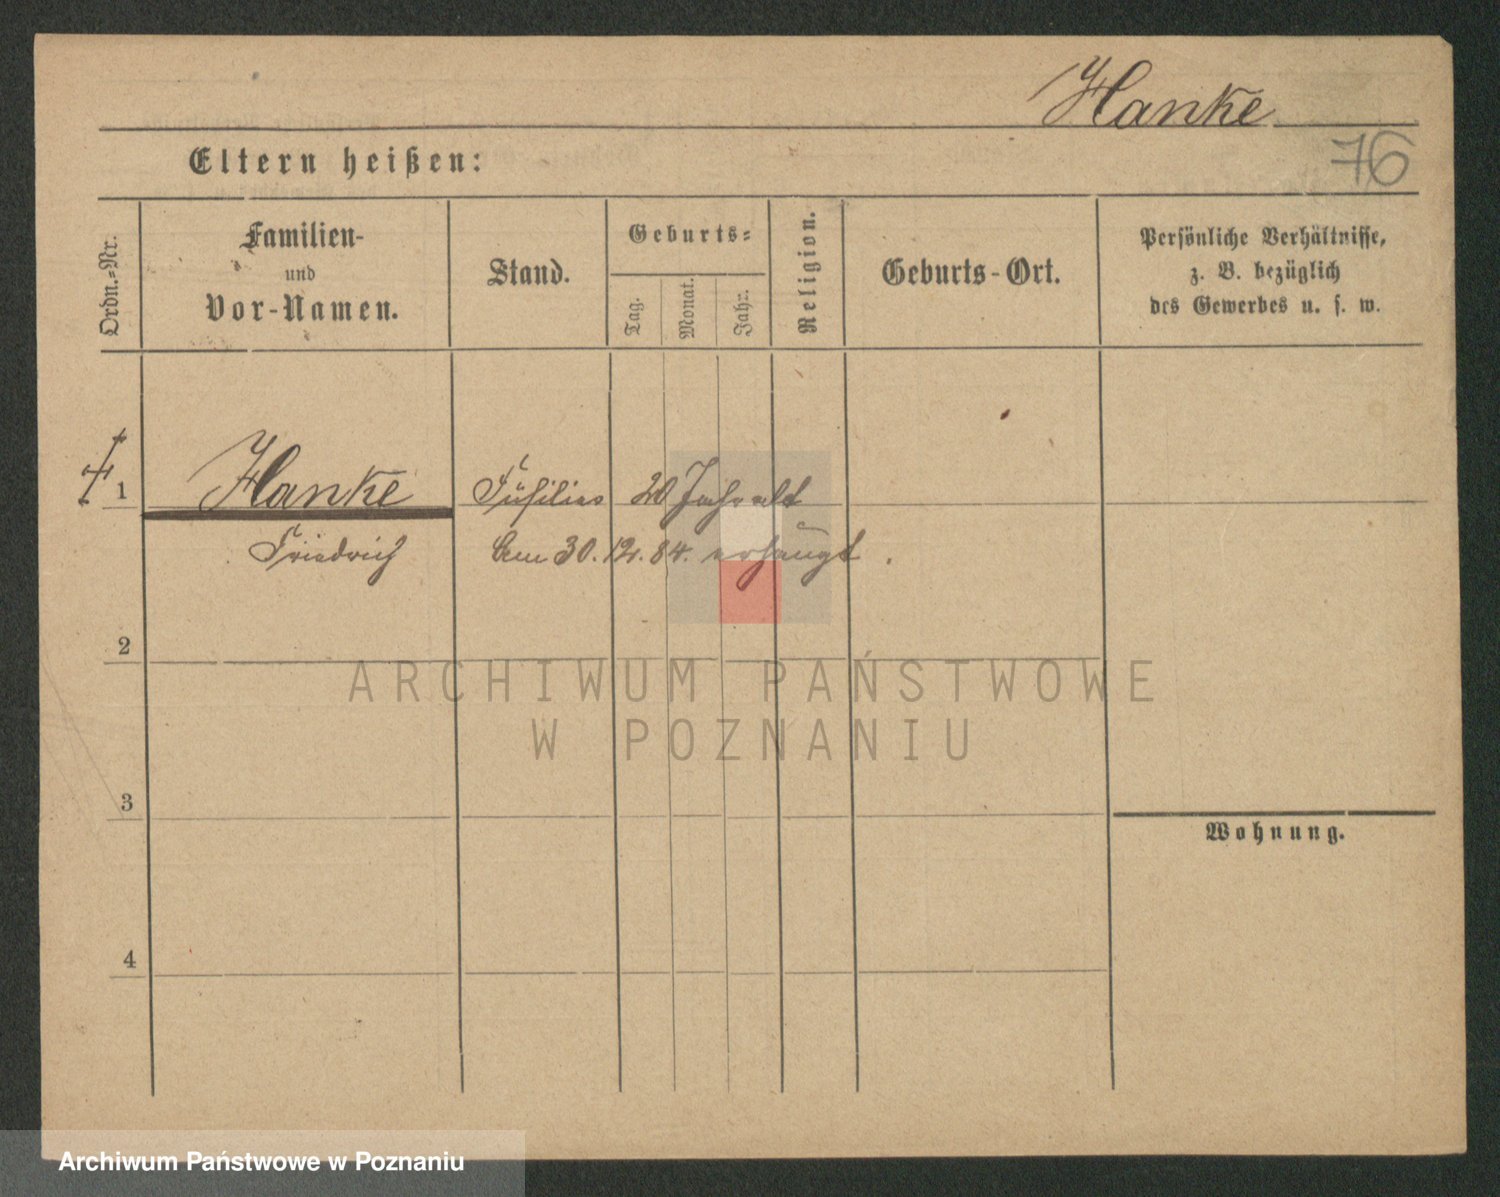 Hanke
76
Eltern heißen:
Ordn.-Nr.
Familien-
und
Vor-Namen.
Stand.
Geburts-
Tag.
Monat.
Jahr.
Religion.
Geburts-Ort.
Persönliche Verhältnisse,
z. B. bezüglich
des Gewerbes u. s. w.
1 Hanke Füsilier 20 Jahr alt
Friedrich Am 30.12.84. erhängt.
2
ARCHIWUM PAŃSTWOWE
W POZNANIU
3
Wohnung.
4
Archiwum Państwowe w Poznaniu